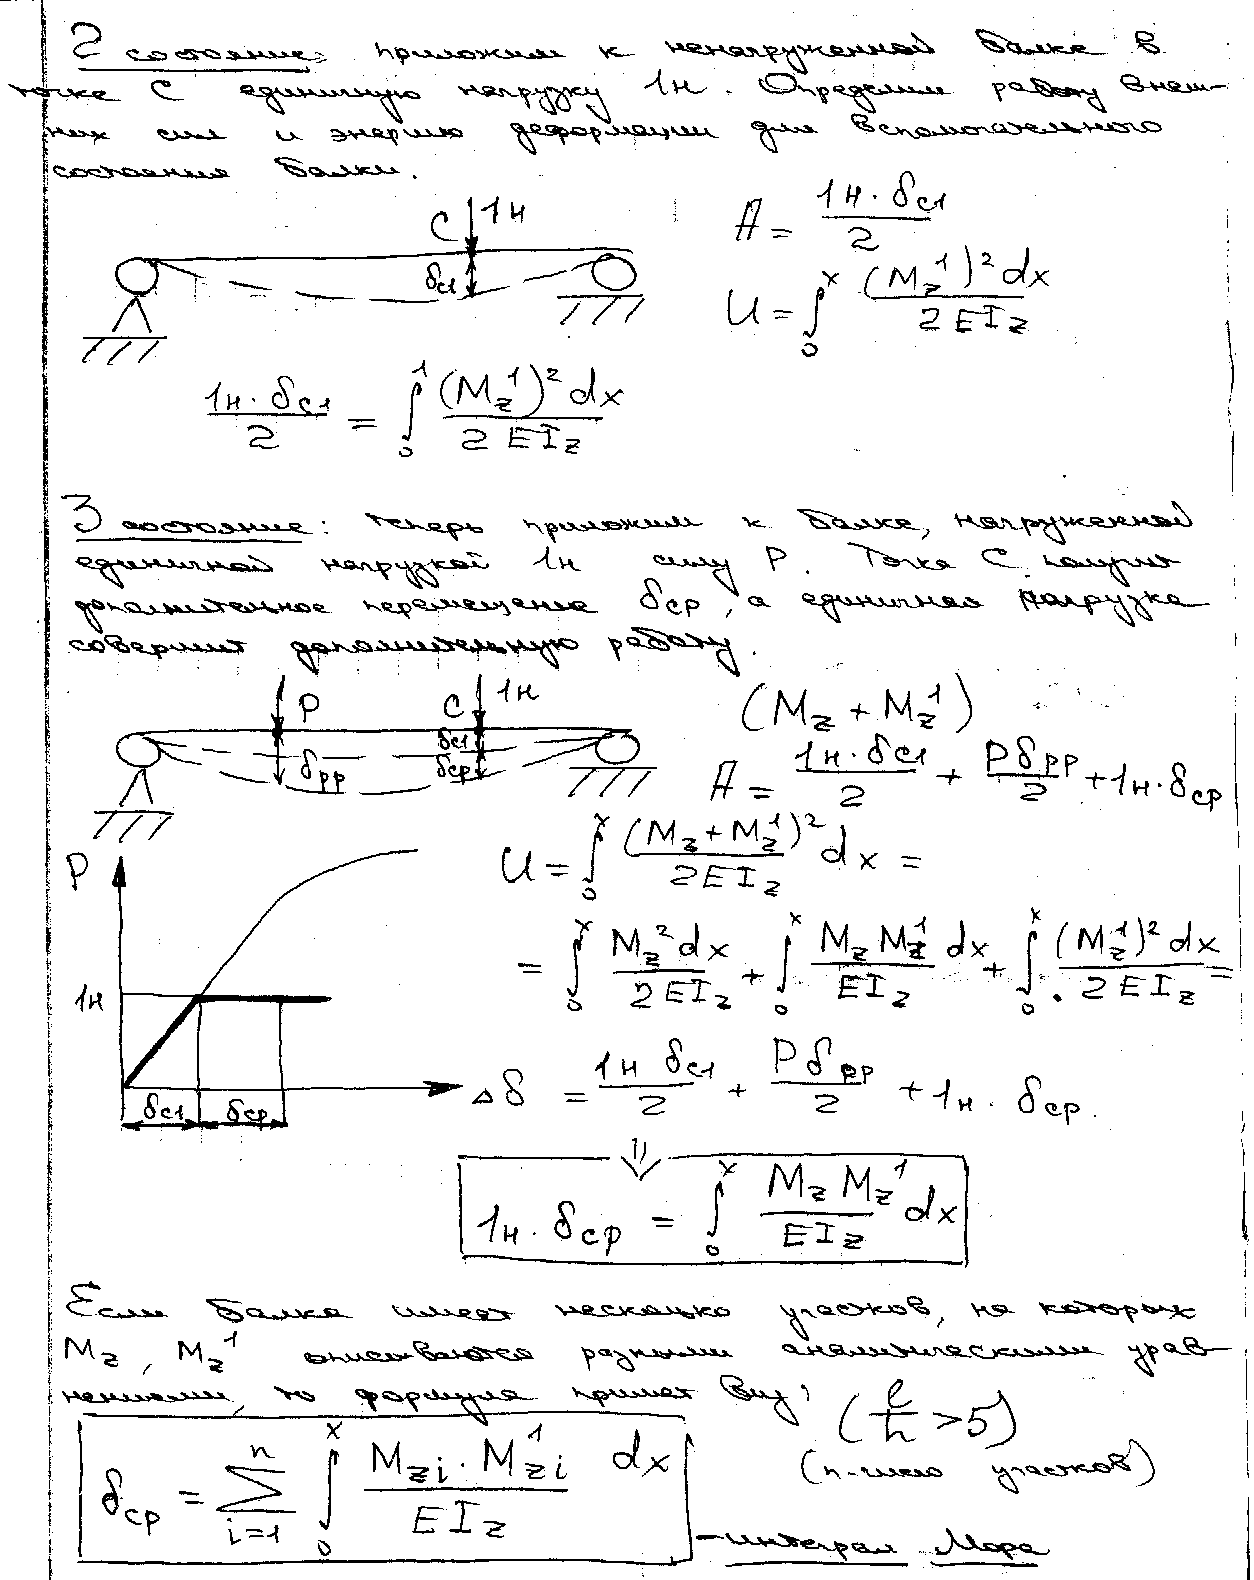 2 состояние: приложим к ненагруженной балке в
точке С единичную нагрузку 1н. Определим работу внеш-
них сил и энергию деформации для вспомогательного
состояния балки.
C 1н
δc1
A = 1н·δc1 / 2
U = ∫₀ˣ (Mz¹)² dx / 2EIz
1н·δc1 / 2 = ∫₀¹ (Mz¹)² dx / 2EIz
3 состояние: теперь приложим к балке, нагруженной
единичной нагрузкой 1н силу P. Точка С получит
дополнительное перемещение δcp, а единичная нагрузка
совершит дополнительную работу.
P C 1н
δpp δc1 δcp
(Mz + Mz¹)
A = 1н·δc1 / 2 + Pδpp / 2 + 1н·δcp
U = ∫₀ˣ (Mz + Mz¹)² / 2EIz dx =
= ∫₀ˣ Mz² dx / 2EIz + ∫₀ˣ Mz Mz¹ / EIz dx + ∫₀ˣ (Mz¹)² dx / 2EIz =
= 1н δc1 / 2 + Pδpp / 2 + 1н·δcp.
P
1н
Δδ
δc1 δcp
⇓
1н·δcp = ∫₀ˣ Mz Mz¹ / EIz dx
Если балка имеет несколько участков, на которых
Mz, Mz¹ описываются разными аналитическими урав-
нениями, то формула примет вид:
(l/h > 5)
(n-число участков)
δcp = Σ i=1 n ∫₀ˣ Mzi·Mzi¹ / EIz dx
- интеграл Мора